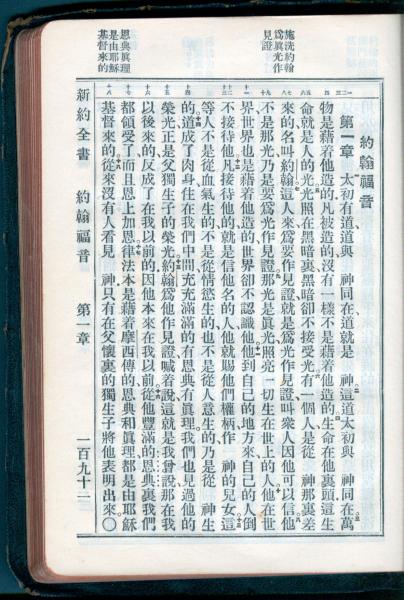 施洗約翰
爲眞光作
見證
恩典眞理
是由耶穌
基督來的
約翰福音
第一章 太初有道道與 神同在道就是 神這道太初與 神同在萬
物是藉着他造的凡被造的沒有一樣不是藉着他造的生命在他裏頭這生
命就是人的光光照在黑暗裏黑暗卻不接受光有一個人是從 神那裏差
來的名叫約翰這人來爲要作見證就是爲光作見證叫衆人因他可以信他
不是那光乃是要爲光作見證那光是眞光照亮一切生在世上的人他在世
界世界也是藉着他造的世界卻不認識他他到自己的地方來自己的人倒
不接待他凡接待他的就是信他名的人他就賜他們權柄作 神的兒女這
等人不是從血氣生的不是從情慾生的也不是從人意生的乃是從 神生
的道成了肉身住在我們中間充充滿滿的有恩典有眞理我們也見過他的
榮光正是父獨生子的榮光約翰爲他作見證喊着說這就是我曾說那在我
以後來的反成了在我以前的因他本來在我以前從他豐滿的恩典裏我們
都領受了而且恩上加恩律法本是藉着摩西傳的恩典和眞理都是由耶穌
基督來的從來沒有人看見 神只有在父懷裏的獨生子將他表明出來〇
新約全書 約翰福音 第一章 一百九十二